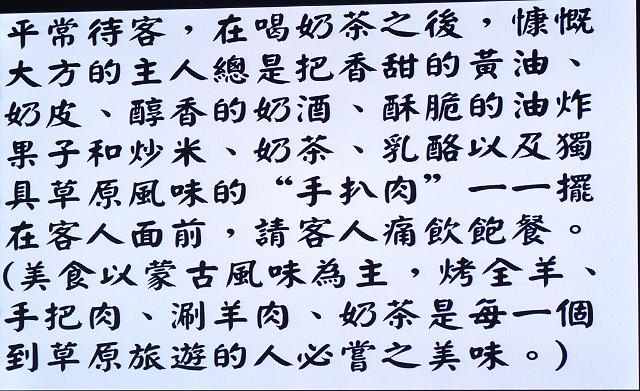 平常待客，在喝奶茶之後，慷慨
大方的主人總是把香甜的黃油、
奶皮、醇香的奶酒、酥脆的油炸
果子和炒米、奶茶、乳酪以及獨
具草原風味的“手扒肉”一一擺
在客人面前，請客人痛飲飽餐。
(美食以蒙古風味為主，烤全羊、
手把肉、涮羊肉、奶茶是每一個
到草原旅遊的人必嘗之美味。)